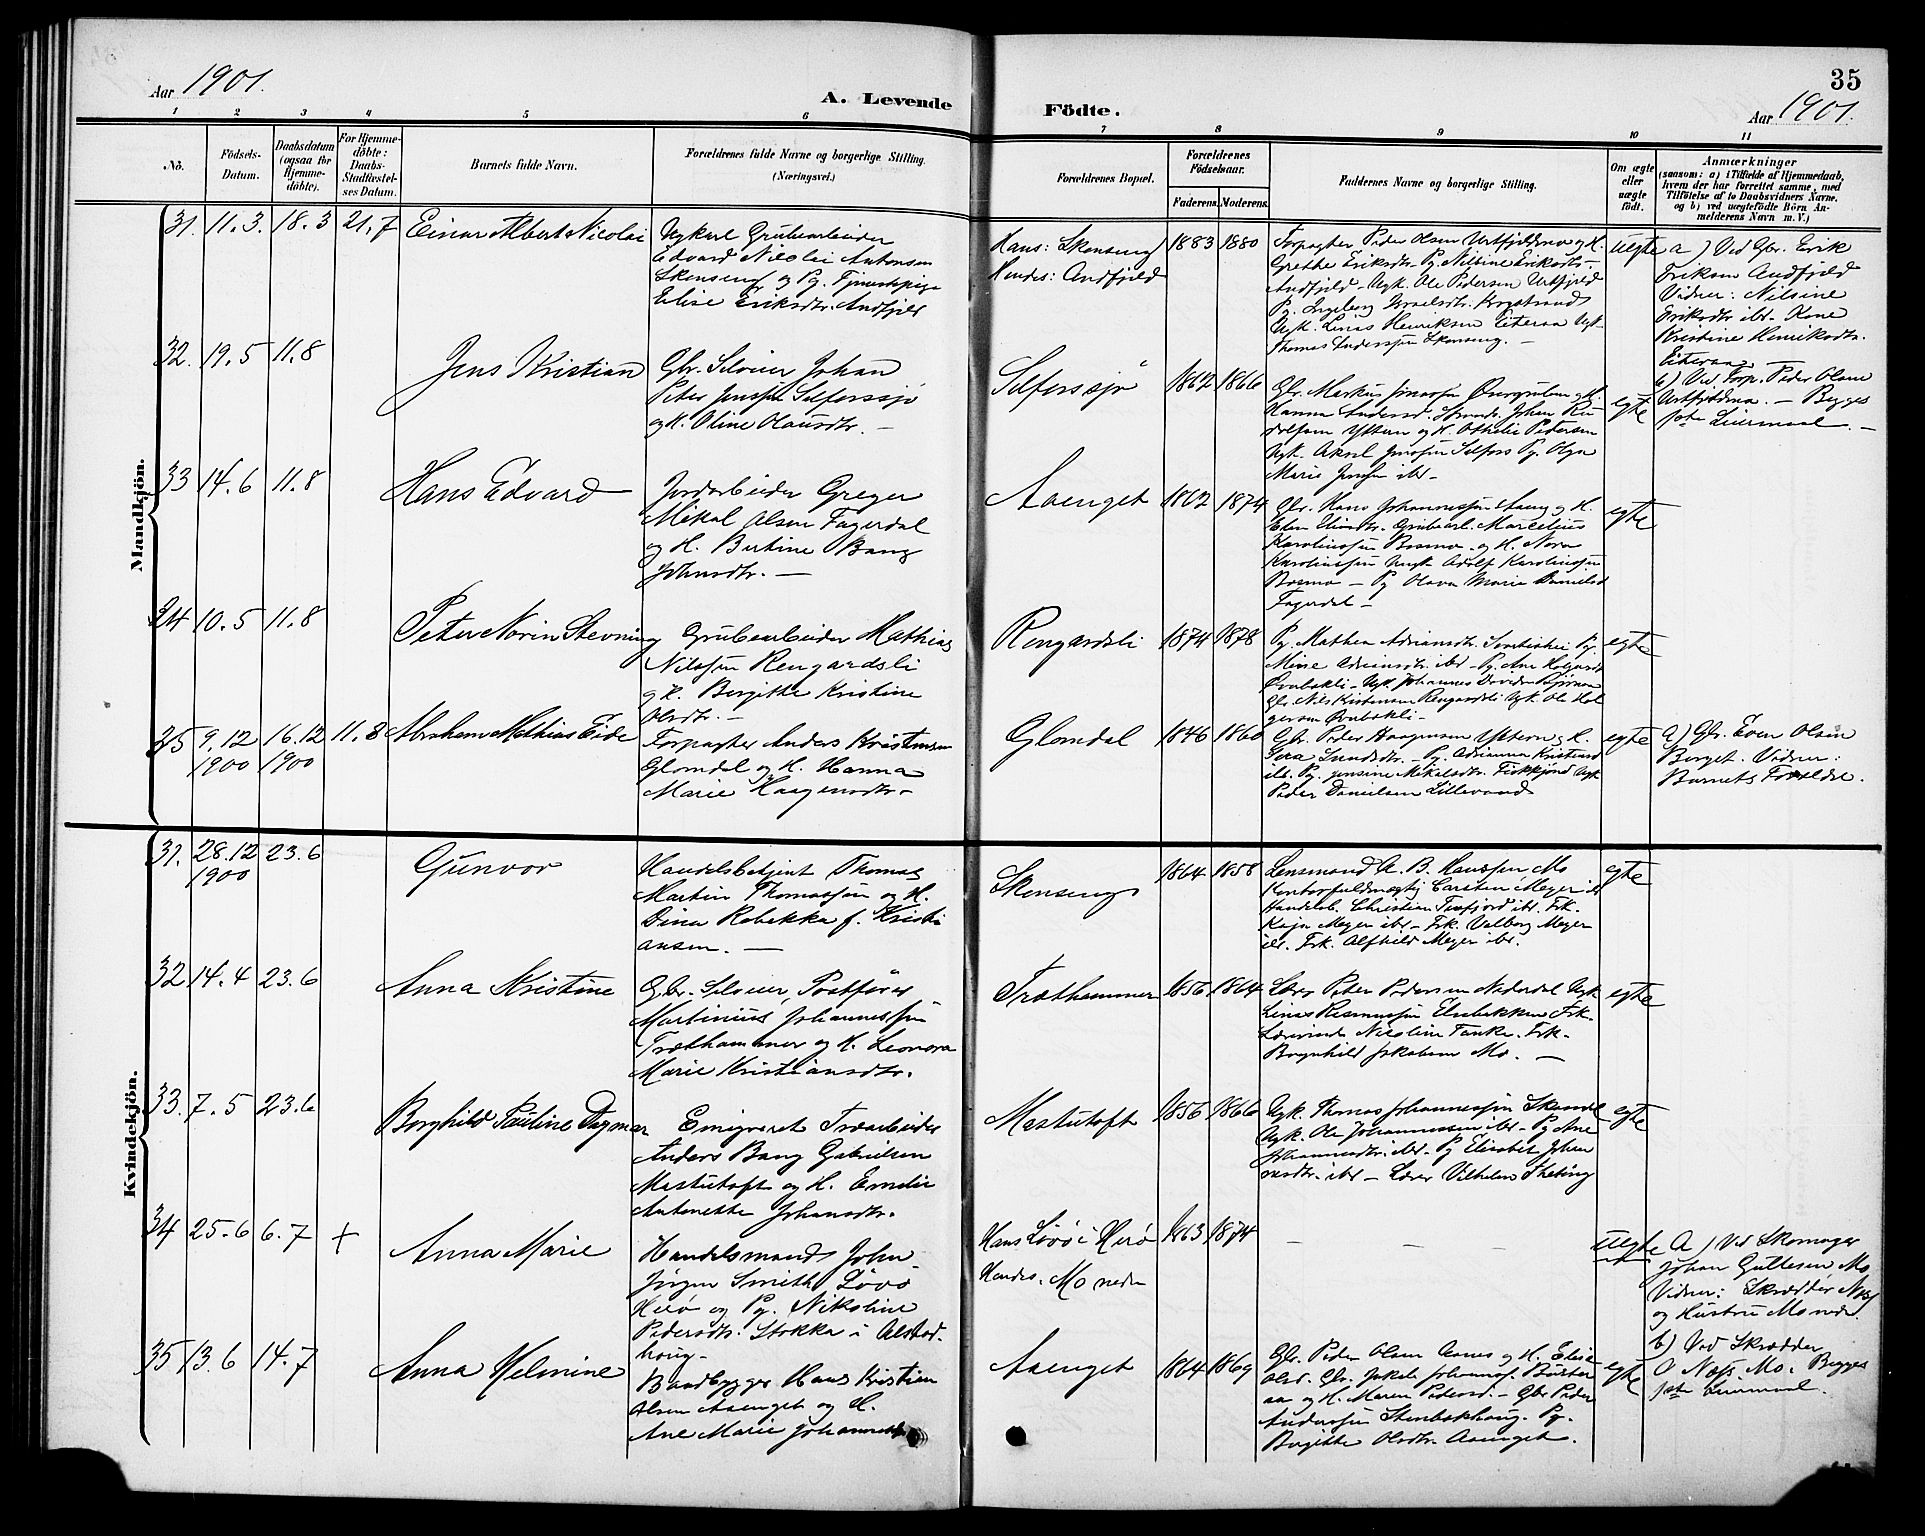 Aar 1901.
A. Levende Födte.
35
Aar 1901.
1 2 3 4 5 6 7 8 9 10 11
No.
Födsels-
Datum.
Daabsdatum
(ogsaa for
Hjemme-
döbte).
For Hjemme-
döbte:
Daabs-
Stadfæstel-
ses Datum.
Barnets fulde Navn.
Forældrenes fulde Navne og borgerlige Stilling.
(Næringsvei.)
Forældrenes Bopæl.
Forældrenes
Födselsaar.
Faderens. Moderens.
Faddernes Navne og borgerlige Stilling.
Om ægte
eller
uægte
födt.
Anmærkninger
(saasom: a) i Tilfælde af Hjemmedaab,
hvem der har forrettet samme, med
Tilföielse af to Daabsvidners Navne,
og b) ved uægtefödte Börn An-
melderens Navn m. V.)
Mandkjön.
31. 11.3. 18.3 21.7 Einar Albert Nicolai
Ugkarl Grubearbeider
Edvard Nicolai Antonsen
Skonseng og Pg. Tjenestepige
Elise Eriksdtr. Andfjeld
Hans: Skonseng
Hendes: Andfjeld
1883 1880
Forpagter Peder Olsen Urtfjeldmo og H.
Grethe Eriksdtr. Pg. Nilsine Eriksdtr.
Andfjeld - Ugk. Ole Pedersen Urtfjeld
Pg. Ingeborg Israelsdtr.
Ugk. Linas Henriksen Eiteraa Ugk.
Thomas Anderssen Skonseng. -
uegte
a) Ved Gbr. Erik
Eriksen Andfjeld
Vidner: Nilsine
Eriksdtr. ibd. Kone
Kristine Henriksdtr.
Eiteraa
b) Ved Forp. Peder Olsen
Urtfjeldmo. - Begges
1ste Leiermaal. -
32. 19.5 11.8 Jens Kristian
Gbr. Selveier Johan
Peter Jenssen Selforssjø
og H. Oline Olausdtr. -
Selforssjø
1862 1866
Gbr. Markus Jonassen og H.
Hanna Andersd. Johan Ru-
dolfsen Yttern og H. Othelie Pedersen
Ugk. Aksel Jenssen Selfors Pg. Olga
Marie Jenssen ibd. -
egte
33 14.6 11.8 Hans Edvard
Jordarbeider Greger
Mikal Olsen Fagerdal
og H. Bertine Bang
Johnsdtr. -
Aaenget
1862 1874
Gbr. Hans Johannessen og H.
Elen Grubearb. Marcelius
Karoliussen Bosmo og H. Nora
Karoliussen Ungk. Adolf Karoliussen
Bosmo - Pg. Olava Marie
Fagerdal -
egte
34 10.5 11.8 Peter Norin Stevning
Grubearbeider Mathias
Nilssen Rengaardsli
og H. Bergitte Kristine
Olsdtr. -
Rengardsli
1874 1878
Pg. Mathea Adriansdtr. Pg.
Mine Adriansdtr. ibd. - Pg. Ane
Ugk. Johannes
Gbr. Nils Kristensen Rengaardsli Ugk. Ole Hol-
gersen
egte
35 9.12 1900 16.12 1900 11.8 Abraham Mathias Eide
Forpagter Anders Kristensen
Glomdal og H. Hanna
Marie Haagensdtr. -
Glomdal
1846 1860
Gbr. Peter Haagensen Yttern og H.
Pg. Adrianna
ibd. Pg. Jensine Mikalsdtr. Ugk.
Peder Danielsen Lillevand
egte
a) Gbr. Even Olsen
Berget. Vidner:
Barnets Forældre.
Kvindekjön.
31. 28.12 1900 23.6 Gunvor
Handelsbetjent Thomas
Martin Thomassen og H.
Dina Rebekka f. Kristi-
ansen. -
Skonseng
1864 1858
Lensmand A. B. Hanssen Mo
Kontorfuldmægtig Carsten Meyer ibd
Handelsb. Christian ibd. Frk.
Kaja Meyer ibd. - Frk. Valborg Meyer
ibd. Frk. Alfhild Meyer ibd.
egte
32 14.4 23.6 Anna Kristine
Gbr. Selveier, Postfører
Martinius Johannessen
Træthammer og H. Leonora
Marie Kristiansdtr.
Træthammer
1856 1864
Peter Pedersen Nederdal Ugk
Linas Rasmussen Frk.
Lærerinde Nicoline Tanke. Frk.
Borghild Jakobsen Mo. -
egte
33. 7.5 23.6 Borghild Pauline Dagmar
Emigreret Træarbeider
Anders Bang Gabrielsen
Mastutoft og H. Emelie
Antonette Johansdtr.
Mastutoft
1856 1866
Ugk. Thomas Johannessen
Ugk. Ole Johannessen ibd. - Pg. Ane
Johannesdtr. ibd. - Pg. Elisabet Johan-
nesdtr. ibd - Lærer Vilhelm
egte
34 25.6 6.7 + Anna Marie
Handelsmand John
Jörgen Smith Lövö
Herö og Pg. Nikoline
Pedersdtr. Stokka i Alstad-
houg -
Hans Lövö i Herö
Hendes. Mo nedre
1863 1874
- - -
uegte
A) Ved Skomager
Johan Guttesen Mo
Vidner: Skrædder Næss
og Hustru Mo nedre
b) Ved Skrædder
O Næss Mo. Begges
1ste Leiermaal.
35 13.6 14.7 Anna Helmine
Baadbygger Hans Kristian
Olsen Aaenget og H.
Ane Marie Johannesdtr.
Aaenget
1864 1869
Gbr. Peder Olsen og H. Elise
Olsd. Gbr. Jakob Johannes.
aa og H. Maren Pedersd. - Gbr. Peder
Anderssen Stenbekhaug. Pg.
Birgitte Olsdtr. Aaenget.
egte